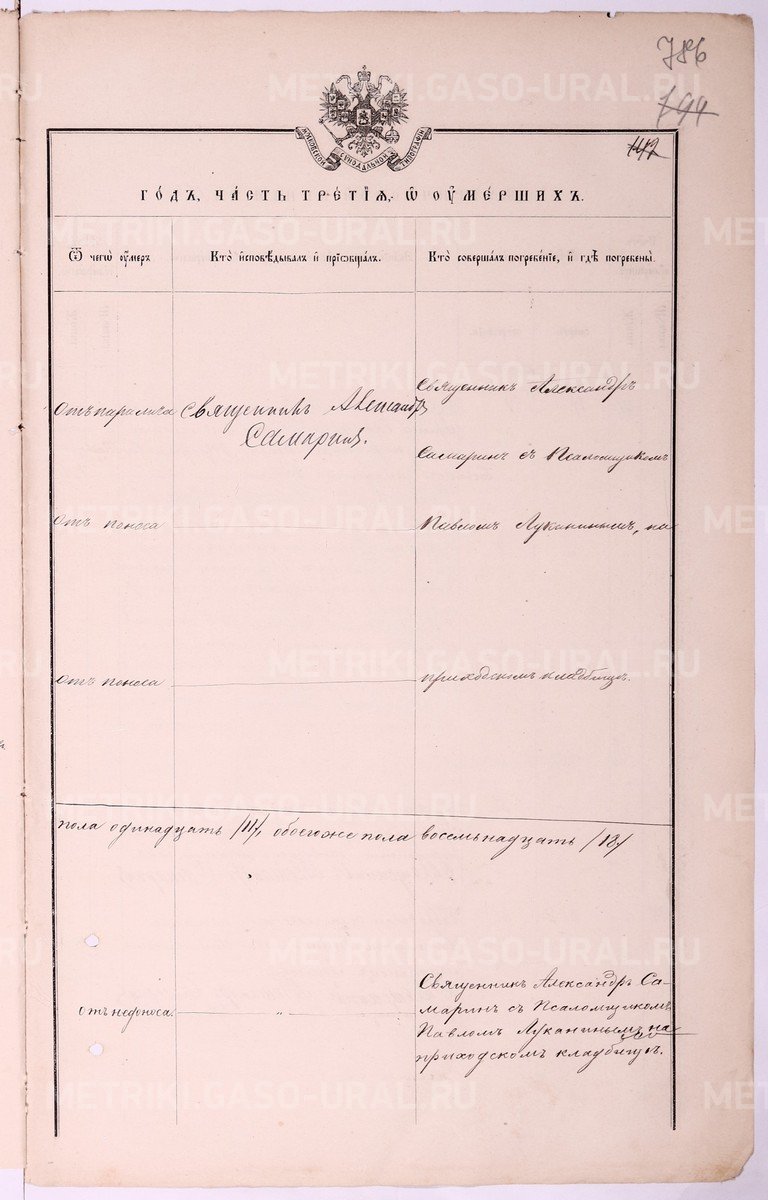 786
194
142
МОСКОВСКОЙ СѴНОДАЛЬНОЙ ТИПОГРАФІИ
ГО́ДЪ, ЧА́СТЬ ТРЕ́ТІѦ, Ѽ ОУ҆МЕ́РШИХЪ.
Ѿ чегѡ̀ ᲂу҆́меръ.
Кто̀ и҆сповѣ́дывалъ и҆ прїѡбща́лъ.
Кто̀ соверша́лъ погребе́нїе, и҆ гдѣ̀ погребены̀.
Отъ паралича
Священникъ Александръ
Самаринъ.
Священникъ Александръ
Самаринъ съ Псаломщикомъ
Отъ поноса
Павломъ Луканинымъ, на
Отъ поноса
приходскомъ кладбищѣ.
пола одинадцать /11/, обоего же пола восемьнадцать /18/
отъ недоноса.
„
Священникъ Александръ Са-
маринъ съ Псаломщикомъ
Павломъ Луканинымъ на
приходскомъ кладбищѣ.
METRIKI.GASO-URAL.RU